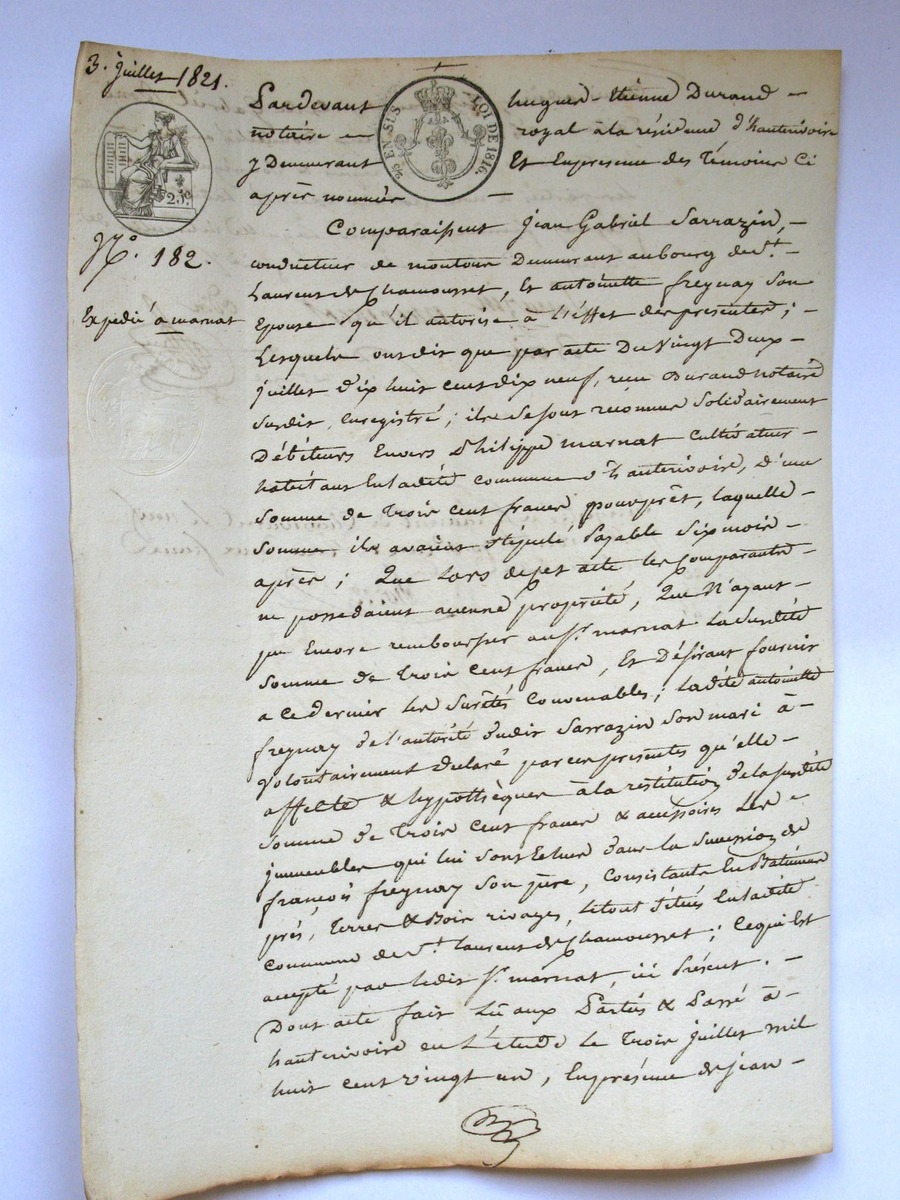 3. juillet 1821.
2/5 EN SUS. LOI DE 1816.
Pardevant hugues-Etienne Durand -
notaire royal à la résidence d'hauterivoire
y Demeurant Et Enpresence des Témoins Ci
après nommés -
25 c
N.° 182.
Expedié a marnat
Comparaissent Jean Gabriel Sarrazin, -
conducteur de Demeurant aubourg de St
Laurent de Chamousset, Et antoinette freynay son
Epouse qu'il autorise à L'éffet des presentes;
Lesquels ont dit que par acte Du Vingt Deux -
juillet Dix huit cent dix neuf, reçu Durand notaire
susdit, Enregistré; ils se sont reconnus Solidairement
Débiteurs Envers Philippe marnat Cultivateur -
habitant Enladite commune d'hauterivoire, d'une
somme de Trois cent francs pour prêt, laquelle
somme, ils avaient stipulé Payable Six mois -
après; Que Lors de cet acte les Comparants
ne possedaient aucune propriété, Que N'ayant -
pu Encore rembourser au Sr. marnat La Susdite
somme de Trois cent francs, Et Désirant fournir
a ce dernier les Suretés Convenables; Ladite antoinette
freynay de l'autorité dudit Sarrazin son mari à -
Volontairement Déclaré par ces presentes qu'elle -
affecte & hypothèque à la restitution de la susdite
somme de Trois cent francs & accessoires Les -
jmmeubles qui lui sont Echus dans la succession de
françois freynay son père, Consistants En Batiments
prés, Terres & Bois rivages, le tout Situés Enladite
commune de St. Laurent de Chamousset; Ce qui Est
accepté par ledit Sr. marnat, ici Présent. -
Dont acte fait Lû aux Parties & Passé à -
hauterivoire en L'étude Le Trois juillet mil
huit cent vingt un, Enpresence de jean -